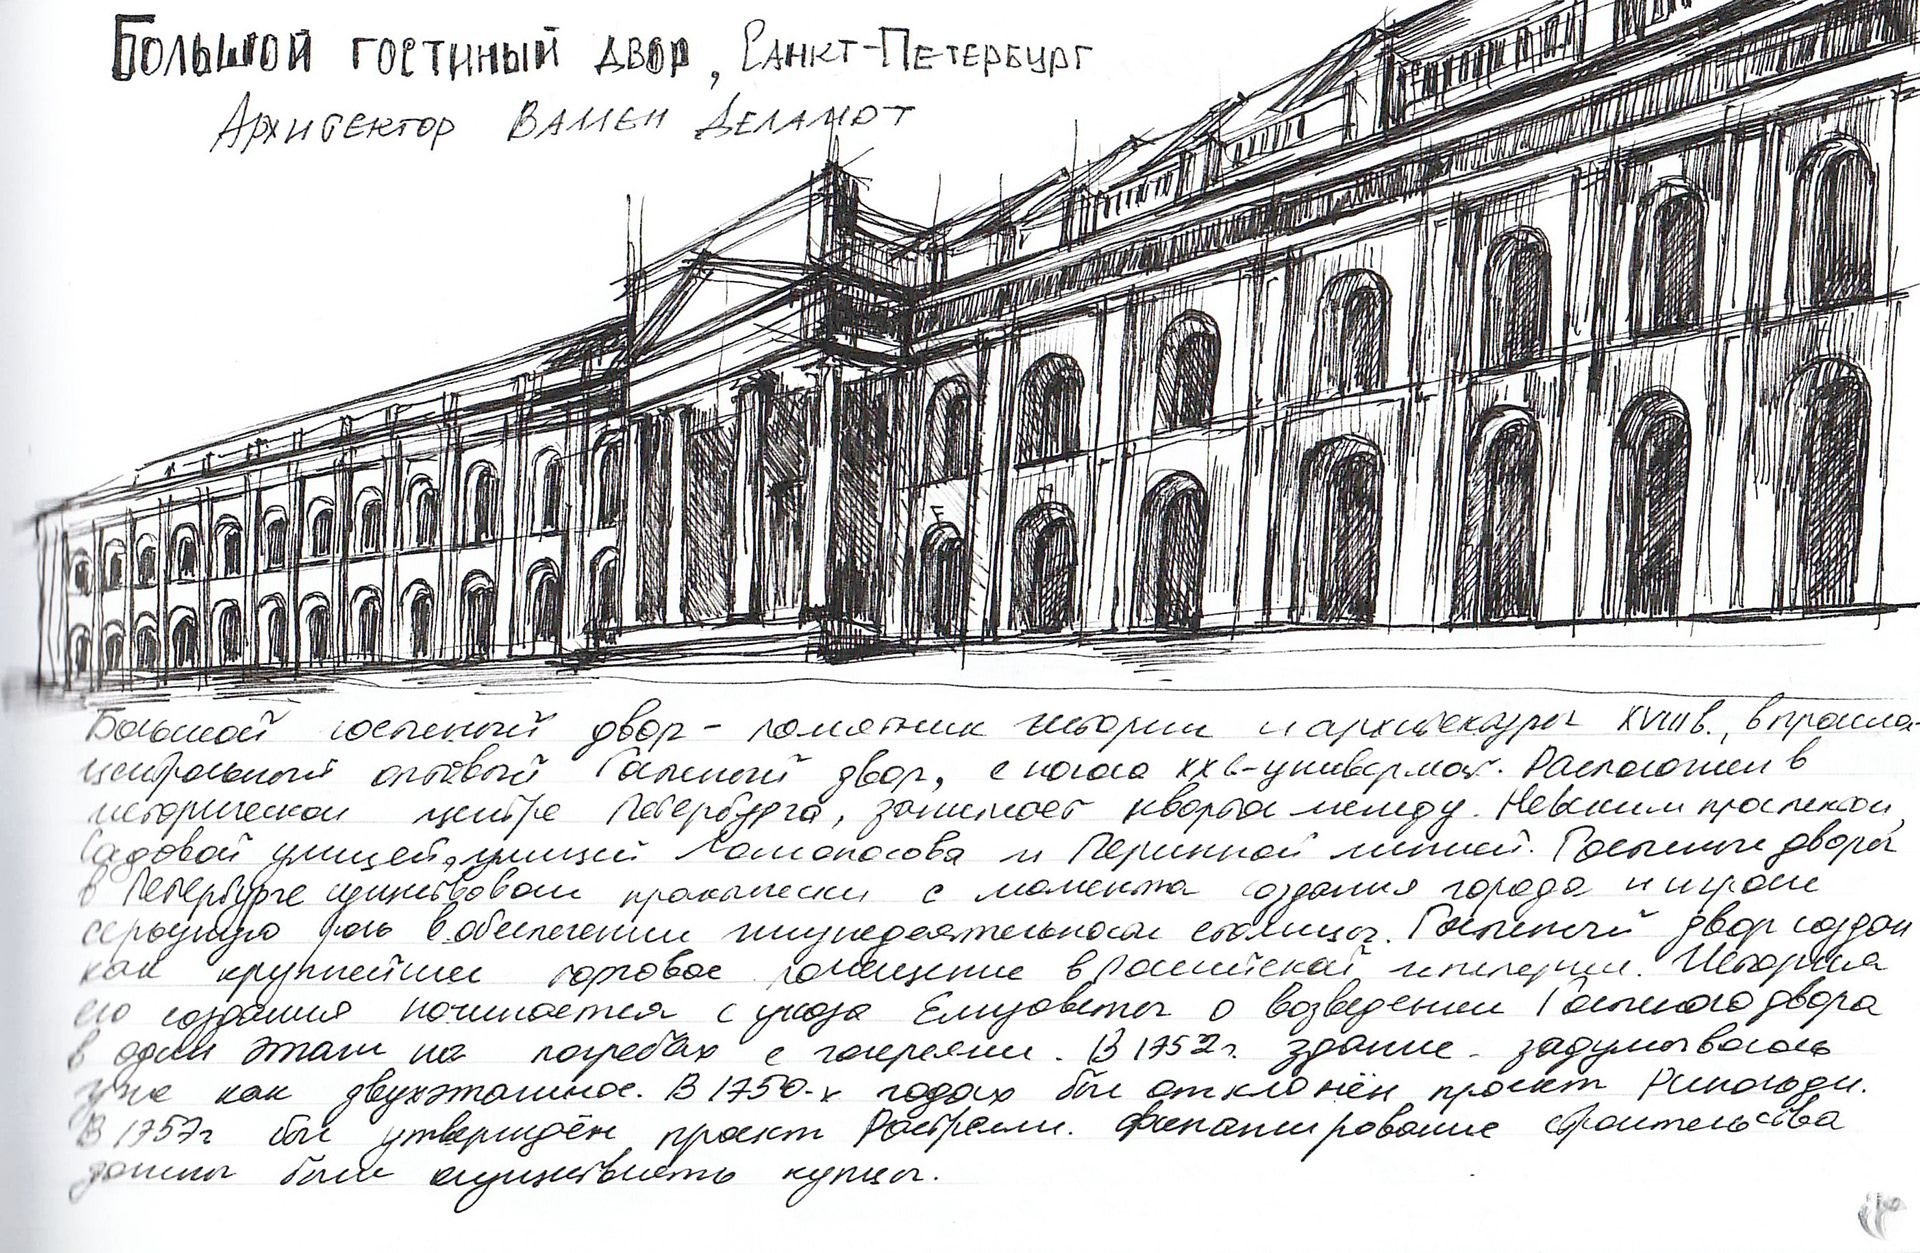 Большой гостиный двор, Санкт-Петербург
Архитектор Вален Деламот
Большой гостиный двор - памятник истории и архитектуры XVIIIв., в прошло-
центральный оптовый Гостиный двор, с начала XXв-универмаг. Расположен в
историческом центре Петербурга, занимает квартал между Невским проспектом,
Садовой улицей, улицей Ломоносова и Перинной линией. Гостиные дворы
в Петербурге существовали практически с момента создания города и играли
серьёзную роль в обеспечении жизнедеятельности столицы. Гостиный двор создан
как крупнейшее торговое помещение в Российской империи. История
его создания начинается с указа Елизаветы о возведении Гостиного двора
в один этаж на погребах с галереями. В 1752г. здание задумывалось
уже как двухэтажное. В 1750-х годах был отклонён проект Ринальди.
В 1757г был утверждён проект Растрелли. Финансирование строительства
должны были осуществлять купцы.